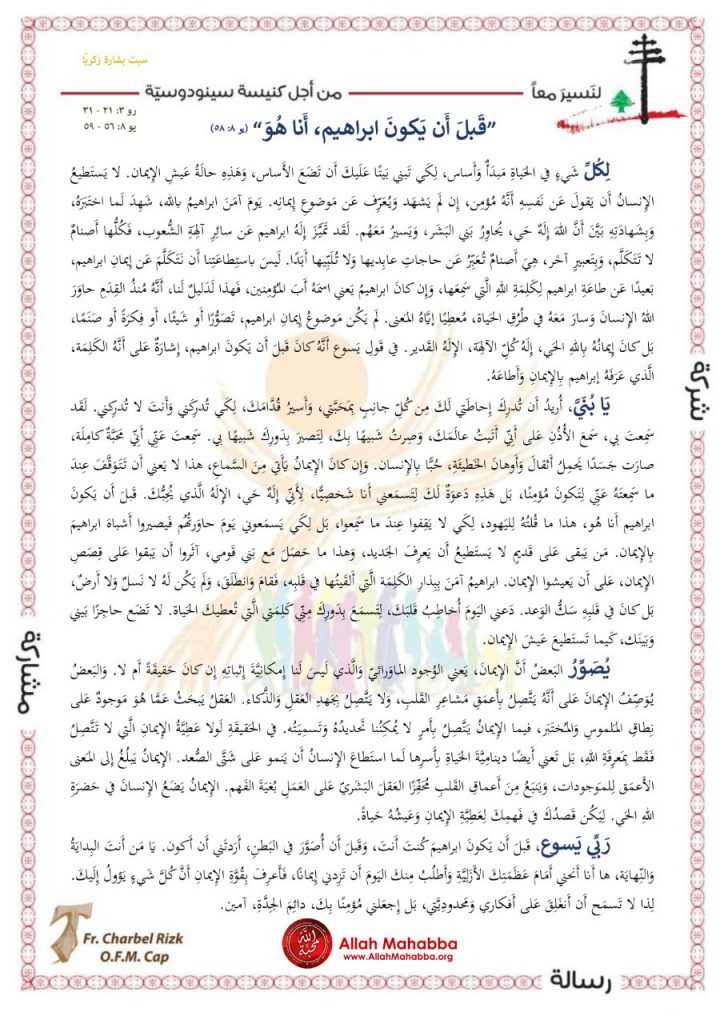 سبت بشارة زكريّا
لنَسيرَ معاً
من أجل كنيسة سينودوسيّة
رو ٣: ٢١ - ٣١
يو ٨: ٥٦ - ٥٩
”قَبلَ أَن يَكونَ ابراهيم، أَنا هُوَ“ (يو ٨: ٥٨)
لِكُلِّ شَيءٍ في الحَياةِ مَبدَأٌ وَأَساس، لِكَي تَبني بَيتًا عَلَيكَ أَن تَضَعَ الأَساس، وَهَذِهِ حالَةُ عَيشِ الإيمان. لا يَستَطيعُ
الإنسانُ أَن يَقولَ عَن نَفسِهِ أَنَّهُ مُؤمِن، إِن لَم يَشهَد وَيُعَرِّف عَن مَوضوعِ إيمانِه. يَومَ آمَنَ ابراهيم بالله، شَهِدَ لَما اختَبَرَهُ،
وَبِشَهادَتِهِ بَيَّنَ أَنَّ اللهَ إلَهٌ حَي، يُحاوِرُ بَني البَشَر، وَيَسيرُ مَعَهُم. لَقَد تَمَيَّزَ إلَهُ ابراهيم عَن سائِرِ آلِهَةِ الشُّعوب، فَكُلُّها أَصنامٌ
لا تَتَكَلَّم، وَبِتَعبيرٍ آخر، هِيَ أَصنامٌ تُعَبِّرُ عَن حاجاتِ عابِديها وَلا تُلَبّيها أَبَدًا. لَيسَ باستِطاعَتِنا أَن نَتَكَلَّمَ عَن إيمانِ ابراهيم،
بَعيدًا عَن طاعَةِ ابراهيم لِكَلِمَةِ اللهِ الَّتي سَمِعَها، وَإن كانَ ابراهيمُ يَعني اسمُهُ أَبَ المُؤمِنين، فَهذا لَدَليلٌ لَنا، أَنَّهُ مُنذُ القِدَمِ حاوَرَ
اللهُ الإنسانَ وَسارَ مَعَهُ في طُرُقِ الحَياة، مُعطِيًا إيّاهُ المَعنى. لَم يَكُن مَوضوعُ إيمانِ ابراهيم، تَصَوُّرًا أَو شَيئًا، أَو فِكرَةً أَو صَنَمًا،
بَل كانَ إيمانُهُ بِاللهِ الحَي، إلَهُ كُلِّ الآلِهَة، الإلَهُ القَدير. في قَولِ يَسوع أَنَّهُ كانَ قَبلَ أَن يَكونَ ابراهيم، إشارَةٌ عَلى أَنَّهُ الكَلِمَة،
الَّذي عَرَفَهُ إبراهيم بِالإيمانِ وَأَطاعَهُ.
يَا بُنَيَّ، أُريدُ أَن تُدرِكَ إحاطَتي لَكَ مِن كُلِّ جانِبٍ بِمَحَبَّتي، وَأَسيرُ قُدَّامَكَ، لِكَي تُدرِكَني وَأَنتَ لا تُدرِكني. لَقَد
سَمِعتَ بي، سَمعَ الأُذُنِ عَلى أَنّي أَتَيتُ عالَمَكَ، وَصِرتُ شَبيهًا بِكَ، لِتَصيرَ بِدَورِكَ شَبيهًا بي. سَمِعتَ عَنّي أَنّي مَحَبَّةٌ كامِلَة،
صارَت جَسَدًا يَحمِلُ أَثقالَ وَأَوهانَ الخَطيئَة، حُبًّا بِالإنسان. وَإن كانَ الإيمانُ يَأتي مِنَ السَّماع، هذا لا يَعني أَن تَتَوَقَّفَ عِندَ
ما سَمِعتَهُ عَنّي لِتَكونَ مُؤمِنًا، بَل هَذِهِ دَعوَةٌ لَكَ لِتَسمَعَني أَنا شَخصِيًّا، لِأَنِّي إلَهٌ حَي، الإلَهُ الَّذي يُحِبُّكَ. قَبلَ أَن يَكونَ
ابراهيم أَنا هُو، هذا ما قُلتُهُ لِليَهود، لِكَي لا يَقِفوا عِندَ ما سَمِعوا، بَل لِكَي يَسمَعوني يَومَ حاوَرتُهُم فَيَصيروا أَشباهَ ابراهيمَ
بِالإيمان. مَن يَبقى عَلى قَديمٍ لا يَستَطيعُ أَن يَعرِفَ الجَديد، وَهذا ما حَصَلَ مَع بَني قَومي، آثَروا أَن يَبقوا عَلى قِصَصِ
الإيمان، عَلى أَن يَعيشوا الإيمان. ابراهيمُ آمَنَ بِبِذارِ الكَلِمَةِ الَّتي أَلقَيتُها في قَلبِه، فَقامَ وَانطَلَق، وَلَم يَكُن لَهُ لا نَسلٌ وَلا أَرضٌ،
بَل كانَ في قَلبِهِ سَكُّ الوَعد. دَعني اليَومَ أُخاطِبُ قَلبَكَ، لِتَسمَعَ بِدَورِكَ مِنّي كَلِمَتي الَّتي تُعطيكَ الحَياة. لا تَضَع حاجِزًا بَيني
وَبَينَك، كَيما تَستَطيعَ عَيشَ الإيمان.
يُصَوِّرُ البَعضُ أَنَّ الإيمانَ، يَعني الوُجود الماوَرائيّ وَالَّذي لَيسَ لَنا إمكانِيَّةُ إثباتِهِ إن كانَ حَقيقَةً أَم لا. وَالبَعضُ
يُوَصِّفُ الإيمانَ عَلى أَنَّهُ يَتَّصِلُ بِأَعمَقِ مَشاعِرِ القَلب، وَلا يَتَّصِلُ بِجَهدِ العَقلِ وَالذَّكاء. العَقلُ يَبحَثُ عَمَّا هُوَ مَوجودٌ عَلى
نِطاقِ المَلموسِ وَالمُختَبَر، فيما الإيمانُ يَتَّصِلُ بِأَمرٍ لا يُمكِنُنا تَحديدُهُ وَتَسمِيَتُه. في الحَقيقَةِ لَولا عَطِيَّةُ الإيمانِ الَّتي لا تَتَّصِلُ
فَقَط بِمَعرِفَةِ الله، بَل تَعني أَيضًا دينامِيَّةَ الحَياةِ بِأَسرِها لَما استَطاعَ الإنسانُ أَن يَنمو عَلى شَتَّى الصُّعد. الإيمانُ يَبلُغُ إلى المَعنى
الأَعمَقِ لِلمَوجودات، وَيَنبَعُ مِنَ أَعماقِ القَلبِ مُحَفِّزًا العَقلَ البَشَريَّ عَلى العَمَلِ بُغيَةَ الفَهم. الإيمانُ يَضَعُ الإنسانَ في حَضرَةِ
اللهِ الحَي. لِيَكُن قَصدُكَ في فَهمِكَ لِعَطِيَّةِ الإيمانِ وَعَيشُهُ حَياةً.
رَبِّي يَسوع، قَبلَ أَن يَكونَ ابراهيمَ كُنتَ أَنتَ، وَقَبلَ أَن أُصَوَّرَ في البَطن، أَرَدتَني أَن أَكون. يَا مَن أَنتَ البِدايَةُ
وَالنِّهايَة، ها أَنا أَنحَني أَمامَ عَظَمَتِكَ الأَزَلِيَّةِ وَأَطلُبُ مِنكَ اليَومَ أَن تَزِدني إيمانًا، فَأَعرِفَ بِقُوَّةِ الإيمانِ أَنَّ كُلَّ شَيءٍ يَؤولُ إلَيكَ.
لِذا لا تَسمَح أَن أَنغَلِقَ عَلى أَفكاري وَمَحدودِيَّتي، بَل إجعَلني مُؤمِنًا بِكَ، دائِمَ الجِدَّة، آمين.
شركة
مشاركة
رسالة
Fr. Charbel Rizk
O.F.M. Cap
الله محبة
Allah Mahabba
www.AllahMahabba.org